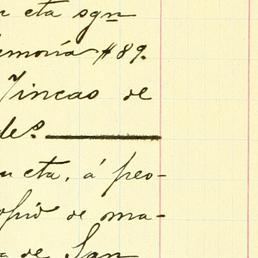 cta sgn
emoria #89.
Fincas de
de.
cta, á peo-
de ma-
de San